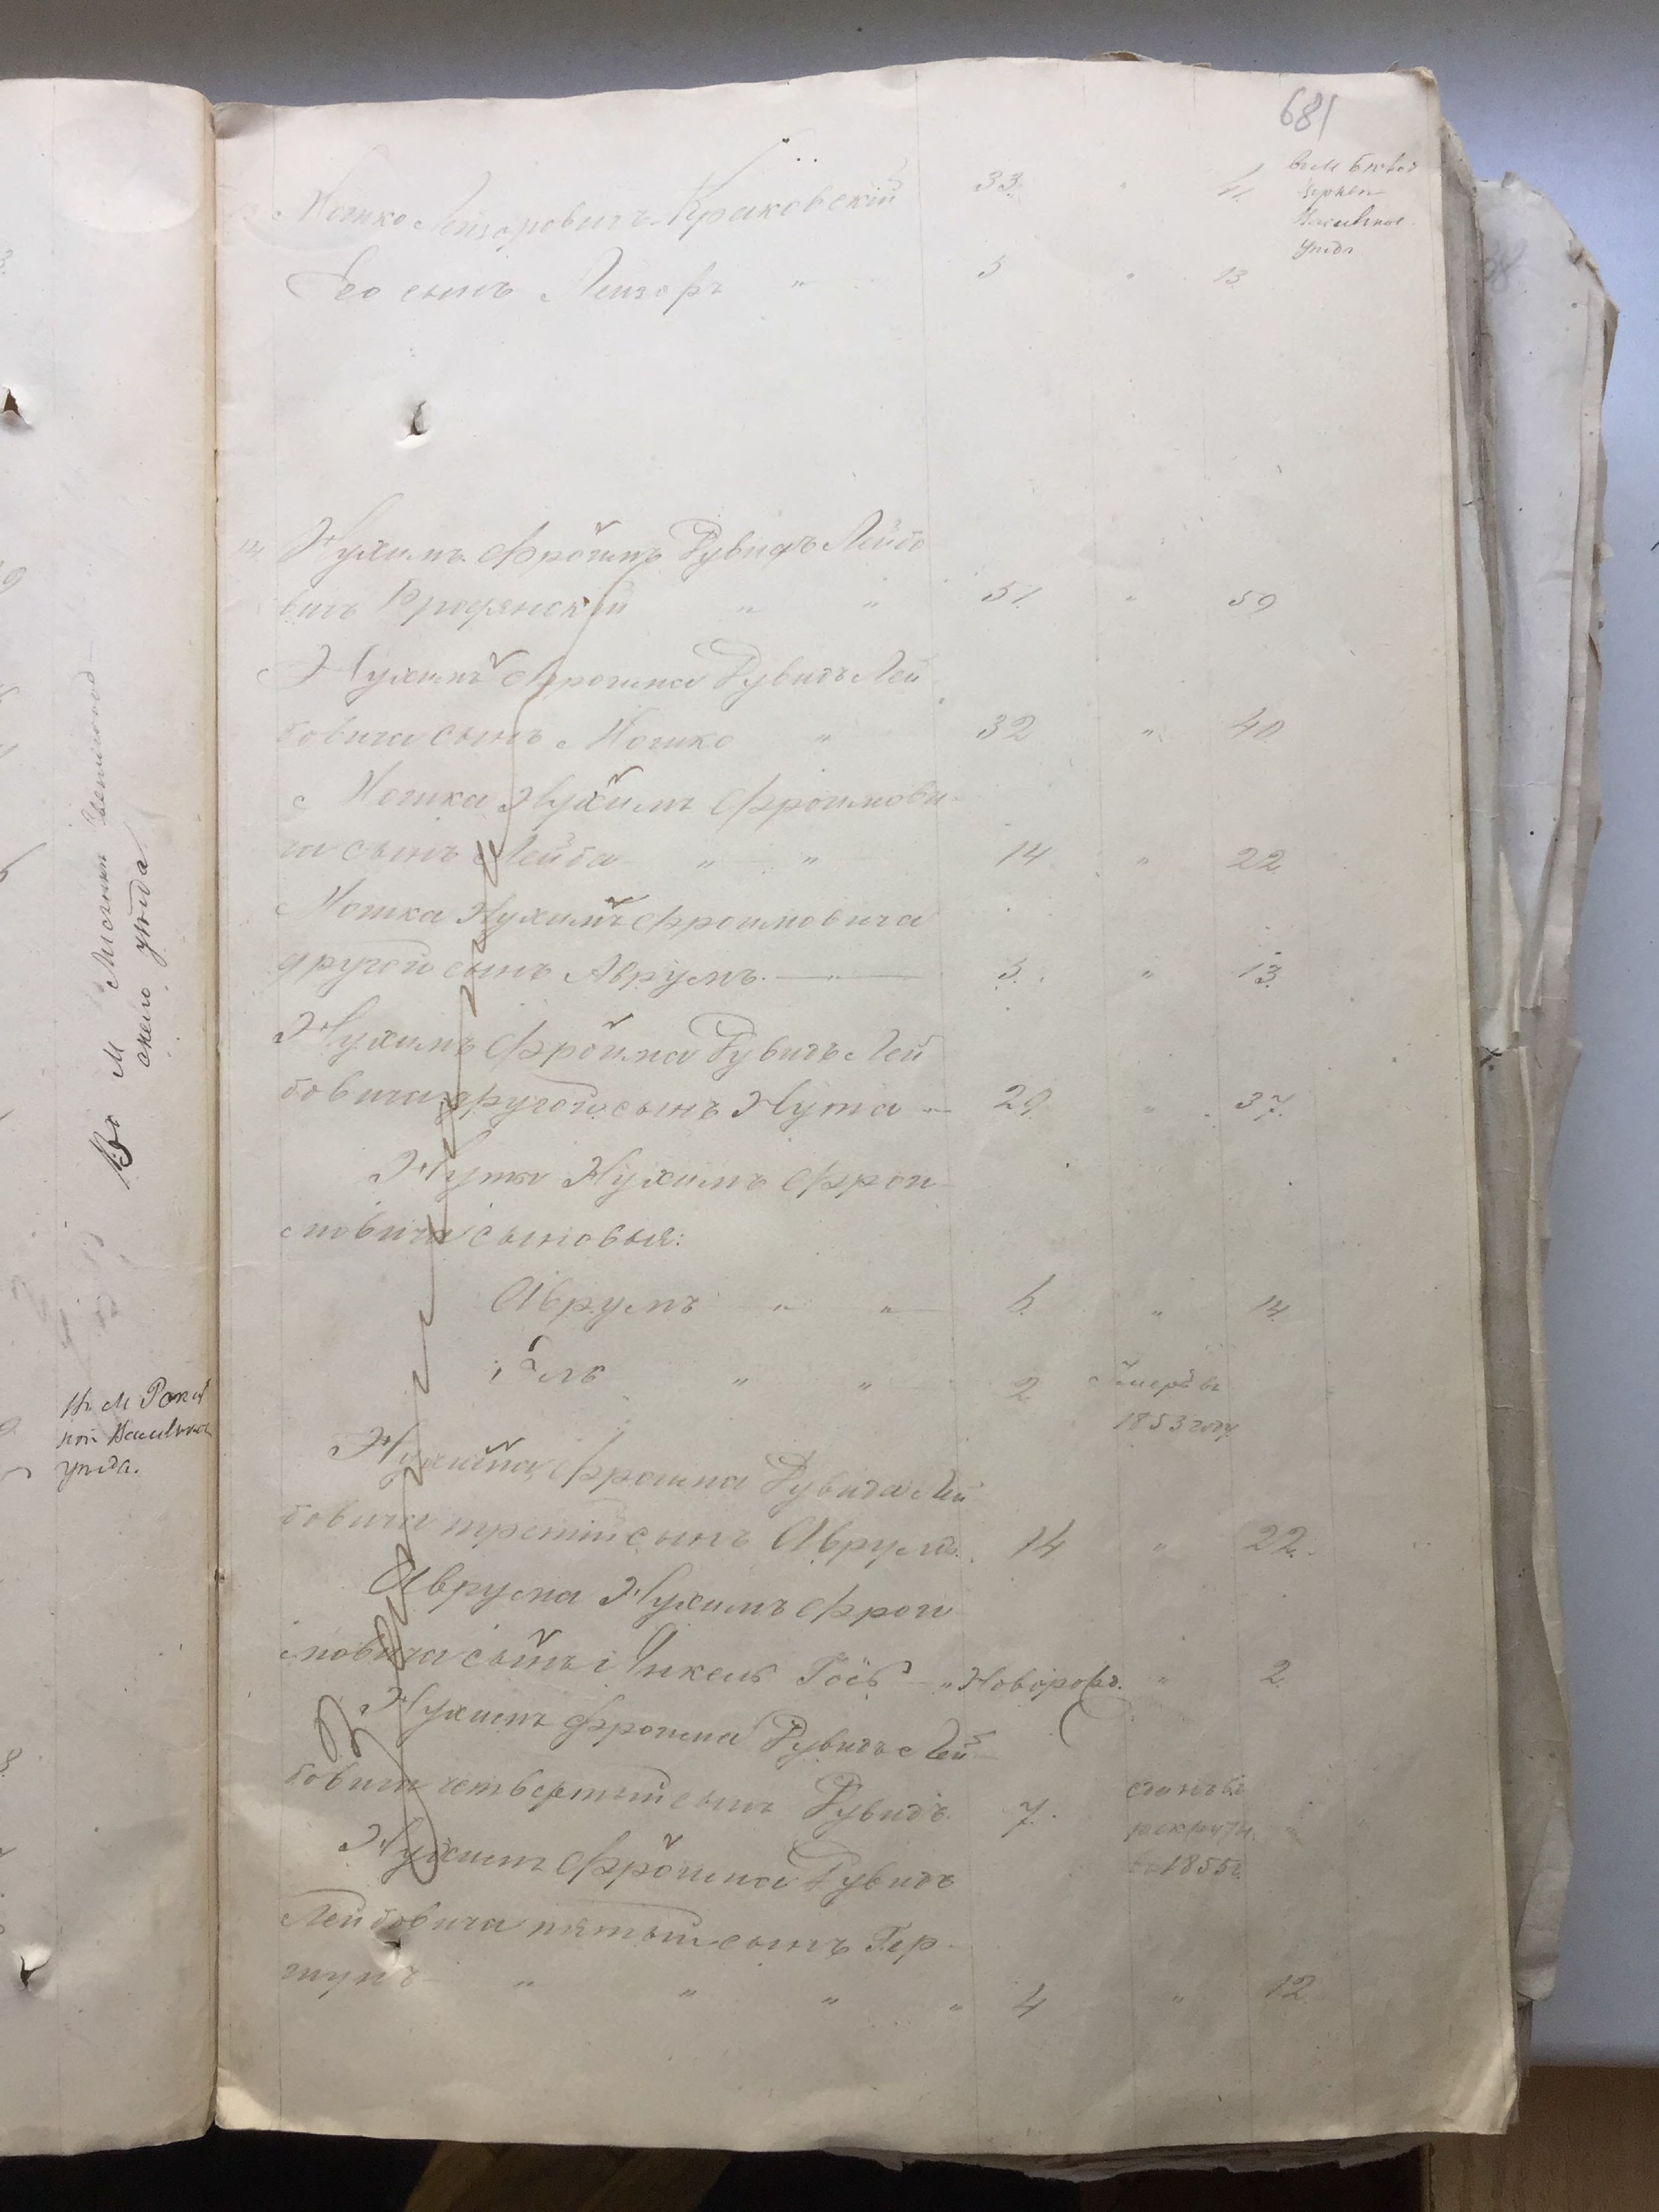 681
Мошко Лейзоровичъ Краковскій 33. " 41.
въ М Бѣлой
Церкви
Васильков.
уѣзда
Его сынъ Лейзоръ " 5 " 13
14 Нухимъ Фроимъ Дувидъ Лейбо
вичъ " " 51. " 59
Нухимъ Фроима Дувидъ Лей
бовича сынъ Мошко " 32 " 40
Мошка Нухимъ Фроимови-
ча сынъ Лейба " " 14 " 22
Мошка Нухимъ Фроимовича
другой сынъ Аврумъ " 5. " 13.
Нухимъ Фроима Дувидъ Лей
бовича другой сынъ Нута " 29. " 37.
Нуты Нухимъ Фрои-
мовича сыновья:
Аврумъ " " 6. " 14.
" " 2 Умеръ въ
1853 году
Нухима Фроима Дувида Лей
бовича третій сынъ Аврумъ. 14 " 22.
Аврума Нухимъ Фрои-
мовича сынъ Янкель " Новорож. " 2.
Нухимъ Фроима Дувидъ Лей-
бовича четвертый сынъ Дувидъ 7. сданъ въ
рекруты
въ 1855 г.
Нухимъ Фроима Дувидъ
Лейбовича пятый сынъ Гер-
шунъ " " " " 4 " 12.
Во М
скаго уѣзда
въ М Ракит
ной Васильков
уѣзда.